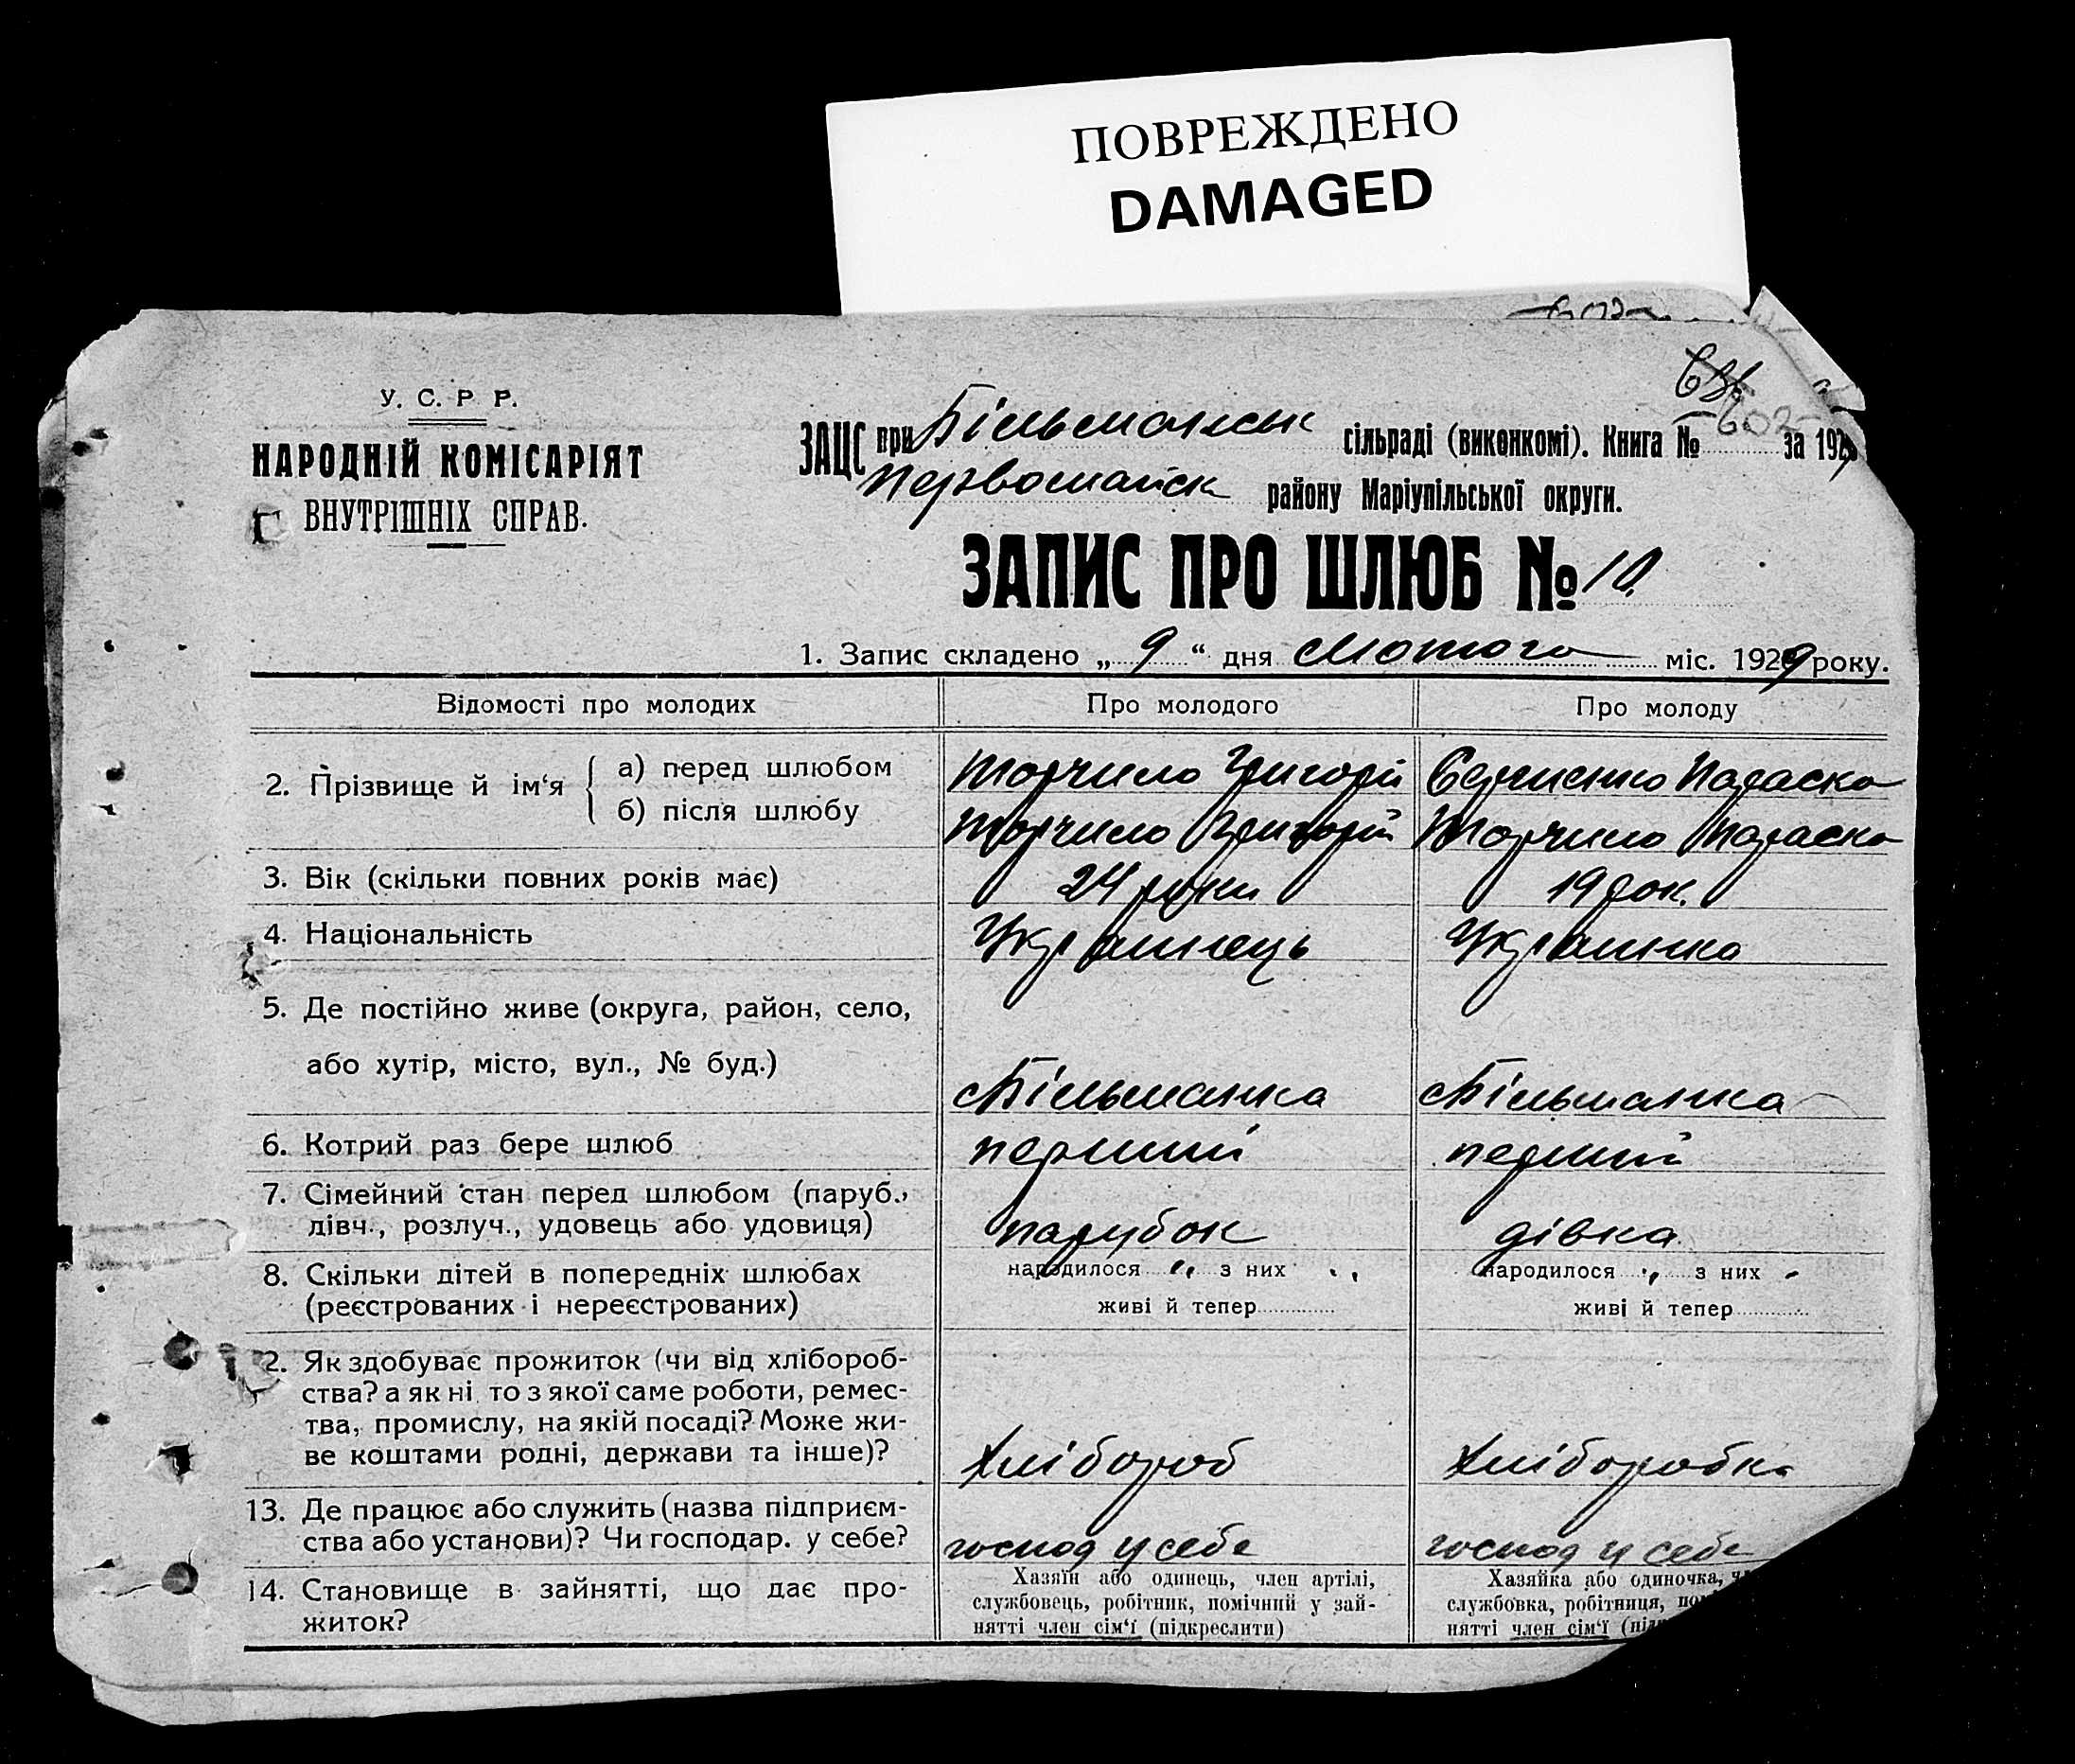 ПОВРЕЖДЕНО
DAMAGED
У. С. Р. Р.
НАРОДНІЙ КОМІСАРІЯТ
ВНУТРІШНІХ СПРАВ.
ЗАЦС при Більманськ сільраді (виконкомі). Книга № за 1929
Первомайськ району Маріупільської округи.
ЗАПИС ПРО ШЛЮБ № 10.
1. Запис складено „ 9 “ дня Лютого міс. 1929 року.
Відомості про молодих Про молодого Про молоду
2. Прізвище й ім‘я
а) перед шлюбом Торчило Григорій Параска
б) після шлюбу Торчило Григорій Торчило Параска
3. Вік (скільки повних років має) 24 роки 19 рок.
4. Національність Українець Українка
5. Де постійно живе (округа, район, село,
або хутір, місто, вул., № буд.) Більманка Більманка
6. Котрий раз бере шлюб перший перший
7. Сімейний стан перед шлюбом (паруб.,
дівч., розлуч., удовець або удовиця) парубок дівка
8. Скільки дітей в попередніх шлюбах народилося „ з них „ народилося „ з них
(реєстрованих і нереєстрованих) живі й тепер живі й тепер
2. Як здобуває прожиток (чи від хлібороб-
ства? а як ні, то з якої саме роботи, ремес-
тва, промислу, на якій посаді? Може жи-
ве коштами родні, держави та інше)? Хлібороб Хлiборобка
13. Де працює або служить (назва підприєм-
ства або установи)? Чи господар. у себе? господ у себе господ у себе
14. Становище в зайнятті, що дає про-
житок?
Хазяїн або одинець, член артілі,
службовець, робітник, помічний у зай-
нятті член сім‘ї (підкреслити)
Хазяйка або одиночка,
службовка, робітниця,
нятті член сім‘ї